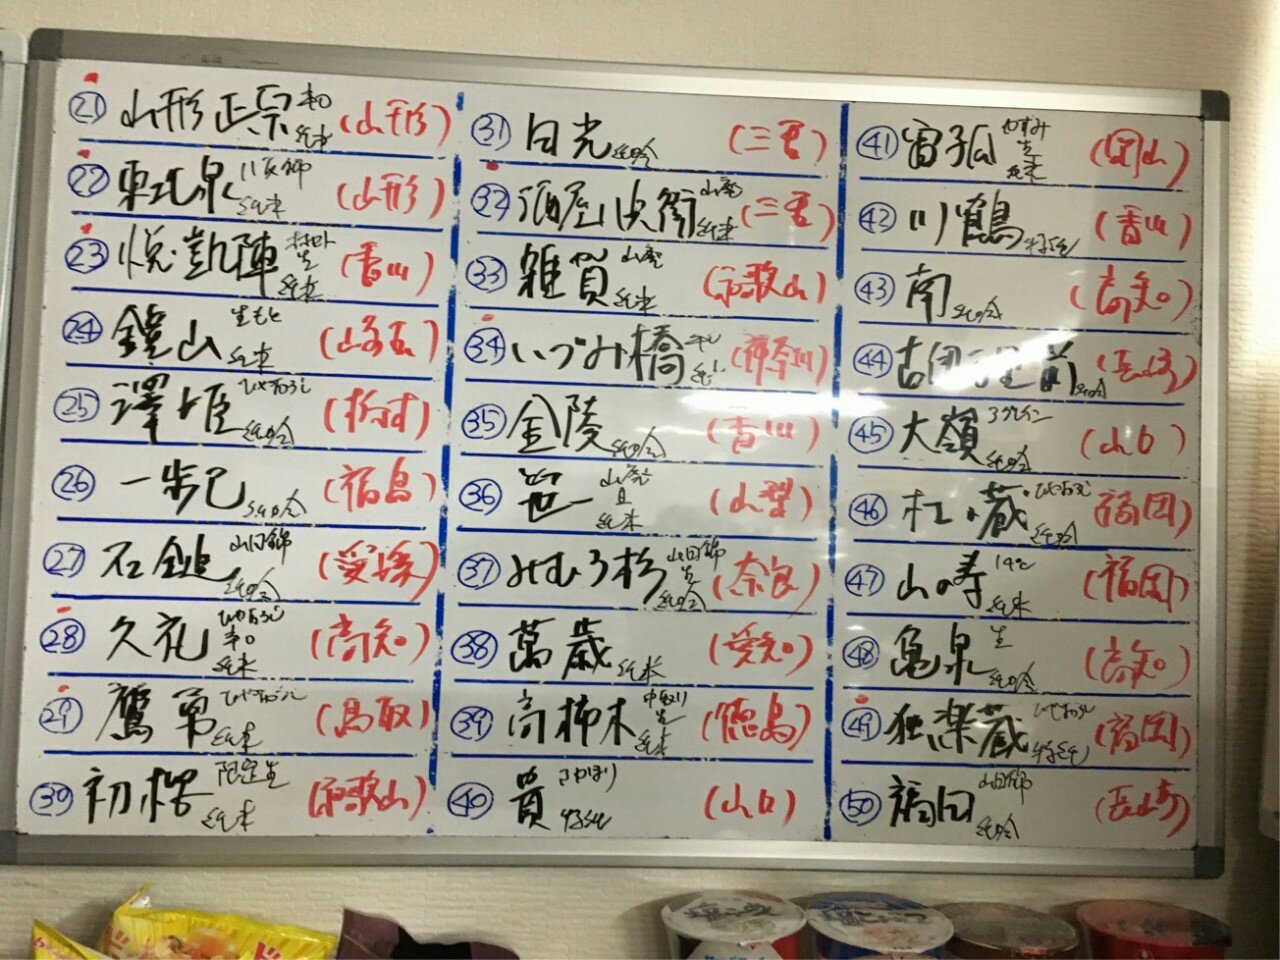 ㉑ 山形正宗 辛口 純米 (山形)
㉒ 東北泉 純米 (山形)
㉓ 悦凱陣 純米 (香川)
㉔ 鏡山 生もと 純米
㉕ 澤姫 ひやおろし 純吟
㉖ 一歩己 純吟 (福島)
㉗ 石鎚 山田錦 純吟 (愛媛)
㉘ 久礼 ひやおろし 辛口 純米 (高知)
㉙ 鷹勇 ひやおろし 純米 (鳥取)
㉚ 初桜 限定生 純米 (和歌山)
㉛ 日光 純吟 (三重)
㉜ 酒屋八兵衛 山廃 純米 (三重)
㉝ 雑賀 山廃 純米 (和歌山)
㉞ いづみ橋 (神奈川)
㉟ 金陵 純吟 (香川)
㊱ 笹一 山廃 純米 (山梨)
㊲ みむろ杉 山田錦 生 純吟 (奈良)
㊳ 萬歳 純米 (愛知)
㊴ 高柿木 中取り 生 純米 (徳島)
㊵ 貴 特純 (山口)
㊶ 雷 生 純米 (岡山)
㊷ 川鶴 特純 (香川)
㊸ 南 純吟 (高知)
㊹ 純吟 (長崎)
㊺ 大嶺 3グレイン 純吟 (山口)
㊻ 杜の蔵 ひやおろし 純吟 (福岡)
㊼ 山の寿 純米 (福岡)
㊽ 亀泉 生 純吟 (高知)
㊾ 独楽蔵 ひやおろし 特純 (福岡)
㊿ 福田 山田錦 純吟 (長崎)